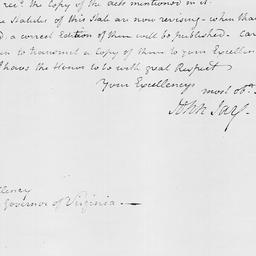 rec.d the Copy of the acts mentioned in it.
Statutes of this State are now revising - when that
a correct Edition of them will be published. Care
to transmit a Copy of them to your Excellen
have the Honor to be with great Respect
Your Excellency's most ob.t
John Jay.
llency
Governor of Virginia